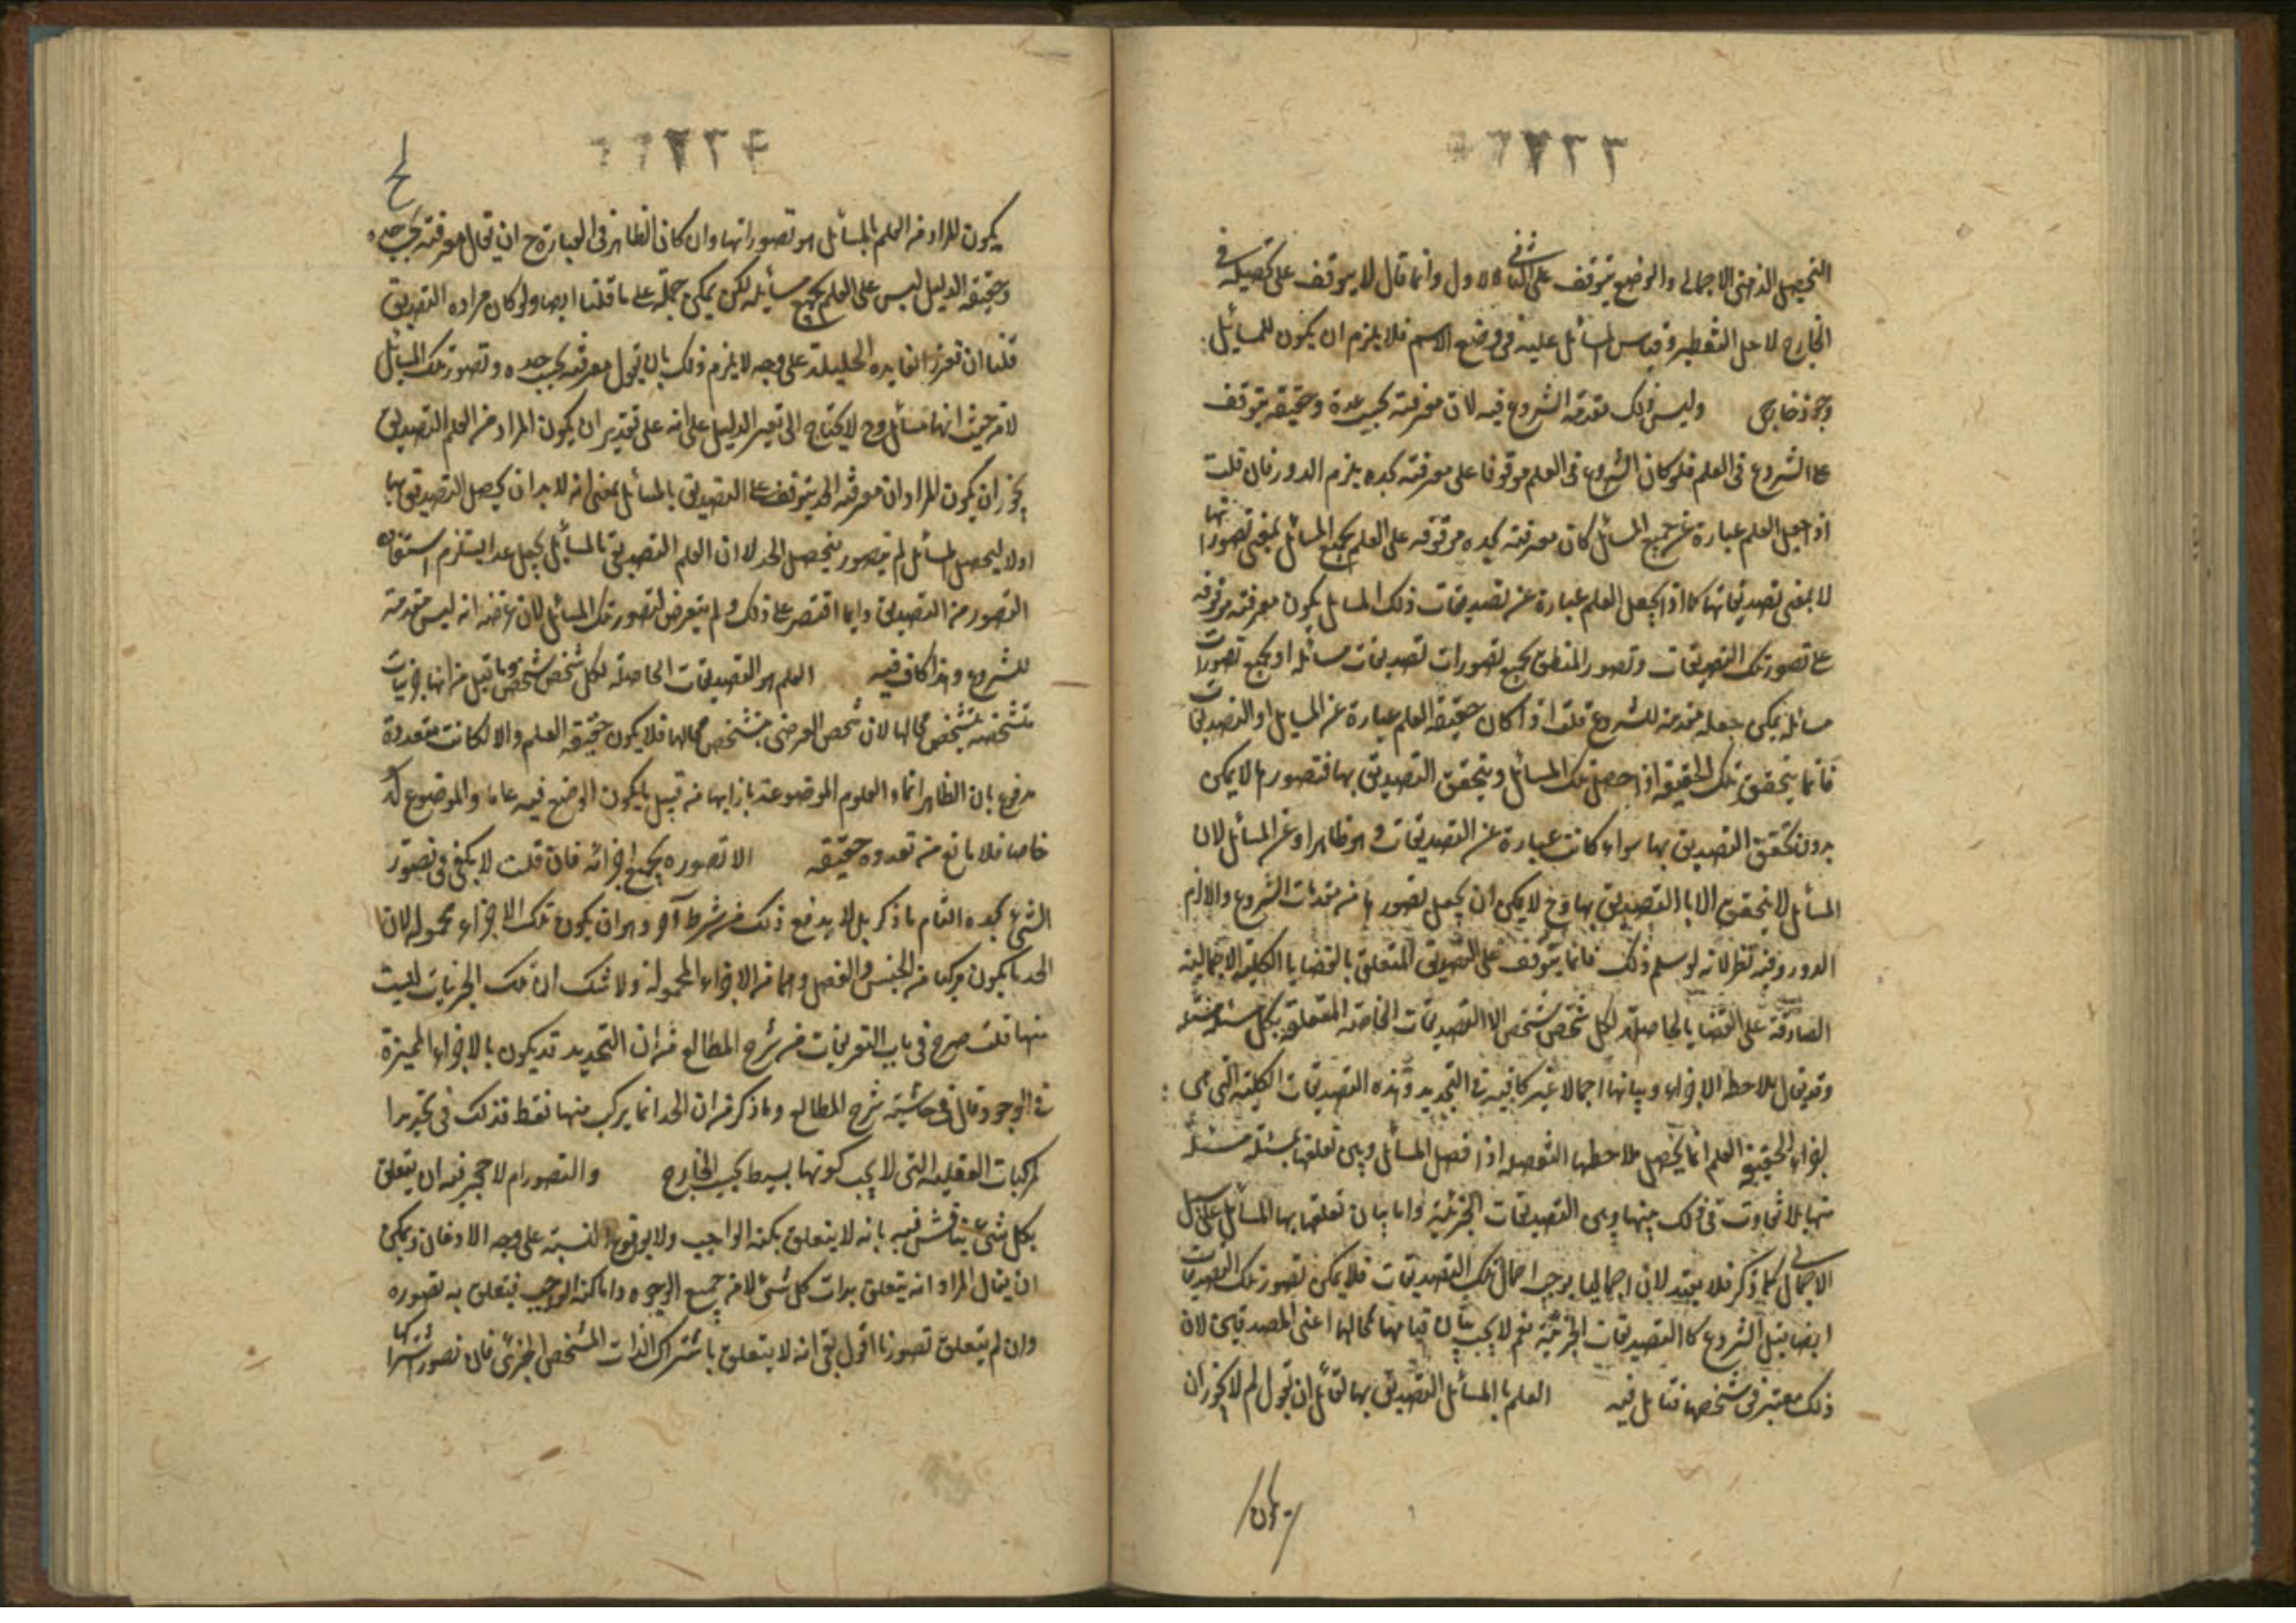 التحصيل الذهني الاجمالي والوضع يتوقف على الثاني لا الاول وانما قال لا يتوقف على تحصيله في
الخارج لاجل التنظير وقياس المسائل عليه في وضع الاسم فلا يلزم ان يكون للمسائل
وجود خارجي وليس ذلك مقدمة الشروع فيه لان معرفته بحسب حده وحقيقته يتوقف
على الشروع في العلم فلو كان الشروع في العلم موقوفا على معرفته بحده يلزم الدور فان قلت
اذا جعل العلم عبارة عن جميع المسائل كان معرفته بحده موقوفه على العلم بجميع المسائل بمعنى تصوراتها
لا بمعنى تصديقاتها كما اذا جعل العلم عبارة عن تصديقات تلك المسائل يكون معرفته موقوفه
على تصور تلك التصديقات وتصور المنطق بجميع تصورات تصديقات مسائله او بجميع تصورات
مسائله يمكن جعله مقدمة للشروع قلت اذا كان حقيقة العلم عبارة عن المسائل او التصديقات
فانما يتحقق تلك الحقيقة اذا حصل تلك المسائل ويتحقق التصديق بها فتصورها لا يمكن
بدون تحقق التصديق بها سواء كانت عبارة عن التصديقات وهو ظاهر او عن المسائل لان
المسائل لا يتحقق الا بالتصديق بها وح لا يمكن ان يجعل تصورها من مقدمات الشروع والا لزم
الدور وفيه نظر لانه لو سلم ذلك فانما يتوقف على التصديق المتعلق بالقضايا الكلية الاجمالية
الصادقة على القضايا الحاصلة لكل شخص شخص الا التصديقات الخاصة المتعلقة بكل مسئلة مسئلة
وقد يقال ملاحظة الاجزاء وبيانها اجمالا غير كافية في التحديد وهذه التصديقات الكلية التي هي
اجزاء لحقيقة العلم انما يحصل ملاحظتها التفصيلية اذا فصل المسائل وبين تعلقها بمسئلة مسئلة
منها بلا تفاوت في ذلك بينها وبين التصديقات الجزئية واما بيان تعلقها بها المسائل على سبيل
الاجمال كما ذكر فلا يفيد لان اجمالها يوجب اجمال تلك التصديقات فلا يمكن تصور تلك التصديقات
ايضا قبل الشروع كالتصديقات الجزئية نعم لا يجب بيان قيامها بمحالها اعني المصدقين لان
ذلك معتبر في تشخصها فتأمل فيه العلم بالمسائل التصديق بها لقائل ان يقول لم لا يجوز ان
يكون
يكون المراد من العلم بالمسائل هو تصوراتها وان كان الظاهر في العبارة ح ان يقال معرفته بحسب حده
وحقيقة الدليل ليس على العلم بجميع مسائله لكن يمكن حمله على ما قلنا ايضا ولو كان مراده التصديق
قلنا ان تحرز الفايده الجليلة على وجه لا يلزم ذلك بان يقول معرفته بحسب حده وتصور تلك المسائل
لا من حيث انها مسائل وح لا يحتاج الى تغير الدليل على انه على تقدير ان يكون المراد من العلم التصديق
يجوز ان يكون المراد ان معرفته الحد يتوقف على التصديق بالمسائل بمعنى انه لا بد ان يحصل التصديق بها
اولا ليحصل المسائل ثم يتصور فيحصل الحد لا ان العلم التصديقي بالمسائل يجعل حدا ليستلزم استفادة
التصور من التصديق وانما اقتصر على ذلك ولم يتعرض لتصور تلك المسائل لان غرضه انه ليس مقدمة
للشروع وهذا كاف فيه العلم هو التصديقات الحاصلة لكل شخص شخص وما قيل من انها جزئيات
متشخصة بتشخص محالها لان تشخص العرض بتشخص محالها فلا يكون حقيقة العلم والا لكانت متعددة
مدفوع بان الظاهر اسماء العلوم الموضوعة بازائها من قبيل ما يكون الوضع فيه عاما والموضوع له
خاصا فلا مانع من تعدده حقيقة الا تصوره بجميع اجزائه فان قلت لا يكفي في تصور
الشئ بحده التام ما ذكر بل لا بد مع ذلك من شرط آخر وهو ان يكون تلك الاجزاء محمولة لان
الحد ما يكون مركبا من الجنس والفصل وهما من الاجزاء المحمولة ولا شك ان تلك الجزئيات ليست
منها قلت صرح في باب التعريفات من شرح المطالع من ان التحديد قد يكون بالاجزاء المميزة
في الوجود وقال في حاشية شرح المطالع وما ذكر من ان الحد انما يركب منها فقط فذلك في تحديد
المركبات العقلية التي لا يجب كونها بسيط بحسب الخارج والتصور لا حجر فيه ان يتعلق
بكل شئ يناقش فيه بانه لا يتعلق بكنه الواجب ولا بوقوع النسبة على وجه الاذعان ويمكن
ان يقال المراد انه يتعلق بذات كل شئ لا من جميع الوجوه واما كنه الواجب فيتعلق به تصوره
وان لم يتعلق تصورنا اقول بقي انه لا يتعلق باشتراك الذات المشخص الجزئي فان تصور اشتراكها